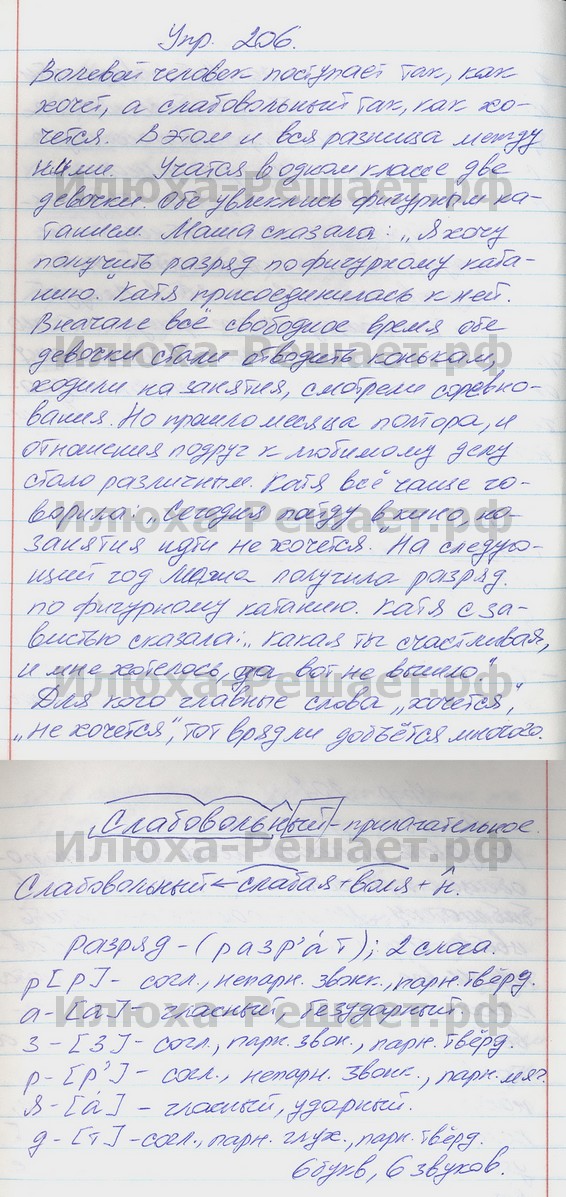 Упр. 206.
Волевой человек поступает так, как
хочет, а слабовольный так, как хо-
чется. В этом и вся разница между
ними. Учатся в одном классе две
Илюха-Решает.рф
девочки. Обе увлеклись фигурным ка-
танием. Маша сказала: „Я хочу
получить разряд по фигурному ката-
нию." Катя присоединилась к ней.
Вначале всё свободное время обе
девочки стали отводить конькам,
Илюха-Решает.рф
ходили на занятия, смотрели соревно-
вания. Но прошло месяца полтора, и
отношения подруг к любимому делу
стало различным. Катя всё чаще го-
ворила: „Сегодня пойду в кино, на
Илюха-Решает.рф
занятия идти не хочется." На следую-
щий год Маша получила разряд
по фигурному катанию. Катя с за-
вистью сказала: „какая ты счастливая,
и мне хотелось, да вот не вышло."
Илюха-Решает.рф
Для кого главные слова „хочется",
„не хочется", тот вряд ли добьётся многого.
Слабовольный - прилагательное.
Илюха-Решает.рф
Слабовольный ← слабая + воля + н.
разряд - (разр'áт); 2 слога.
р [р] - согл., непарн. звонк., парн. твёрд.
а - [а] - гласный, безударный.
Илюха-Решает.рф
з - [з] - согл., парн. звон., парн. твёрд.
р - [р'] - согл., непарн. звонк., парн. мяг.
я - [á] - гласный, ударный.
д - [т] - согл., парн. глух., парн. твёрд.
6 букв, 6 звуков.